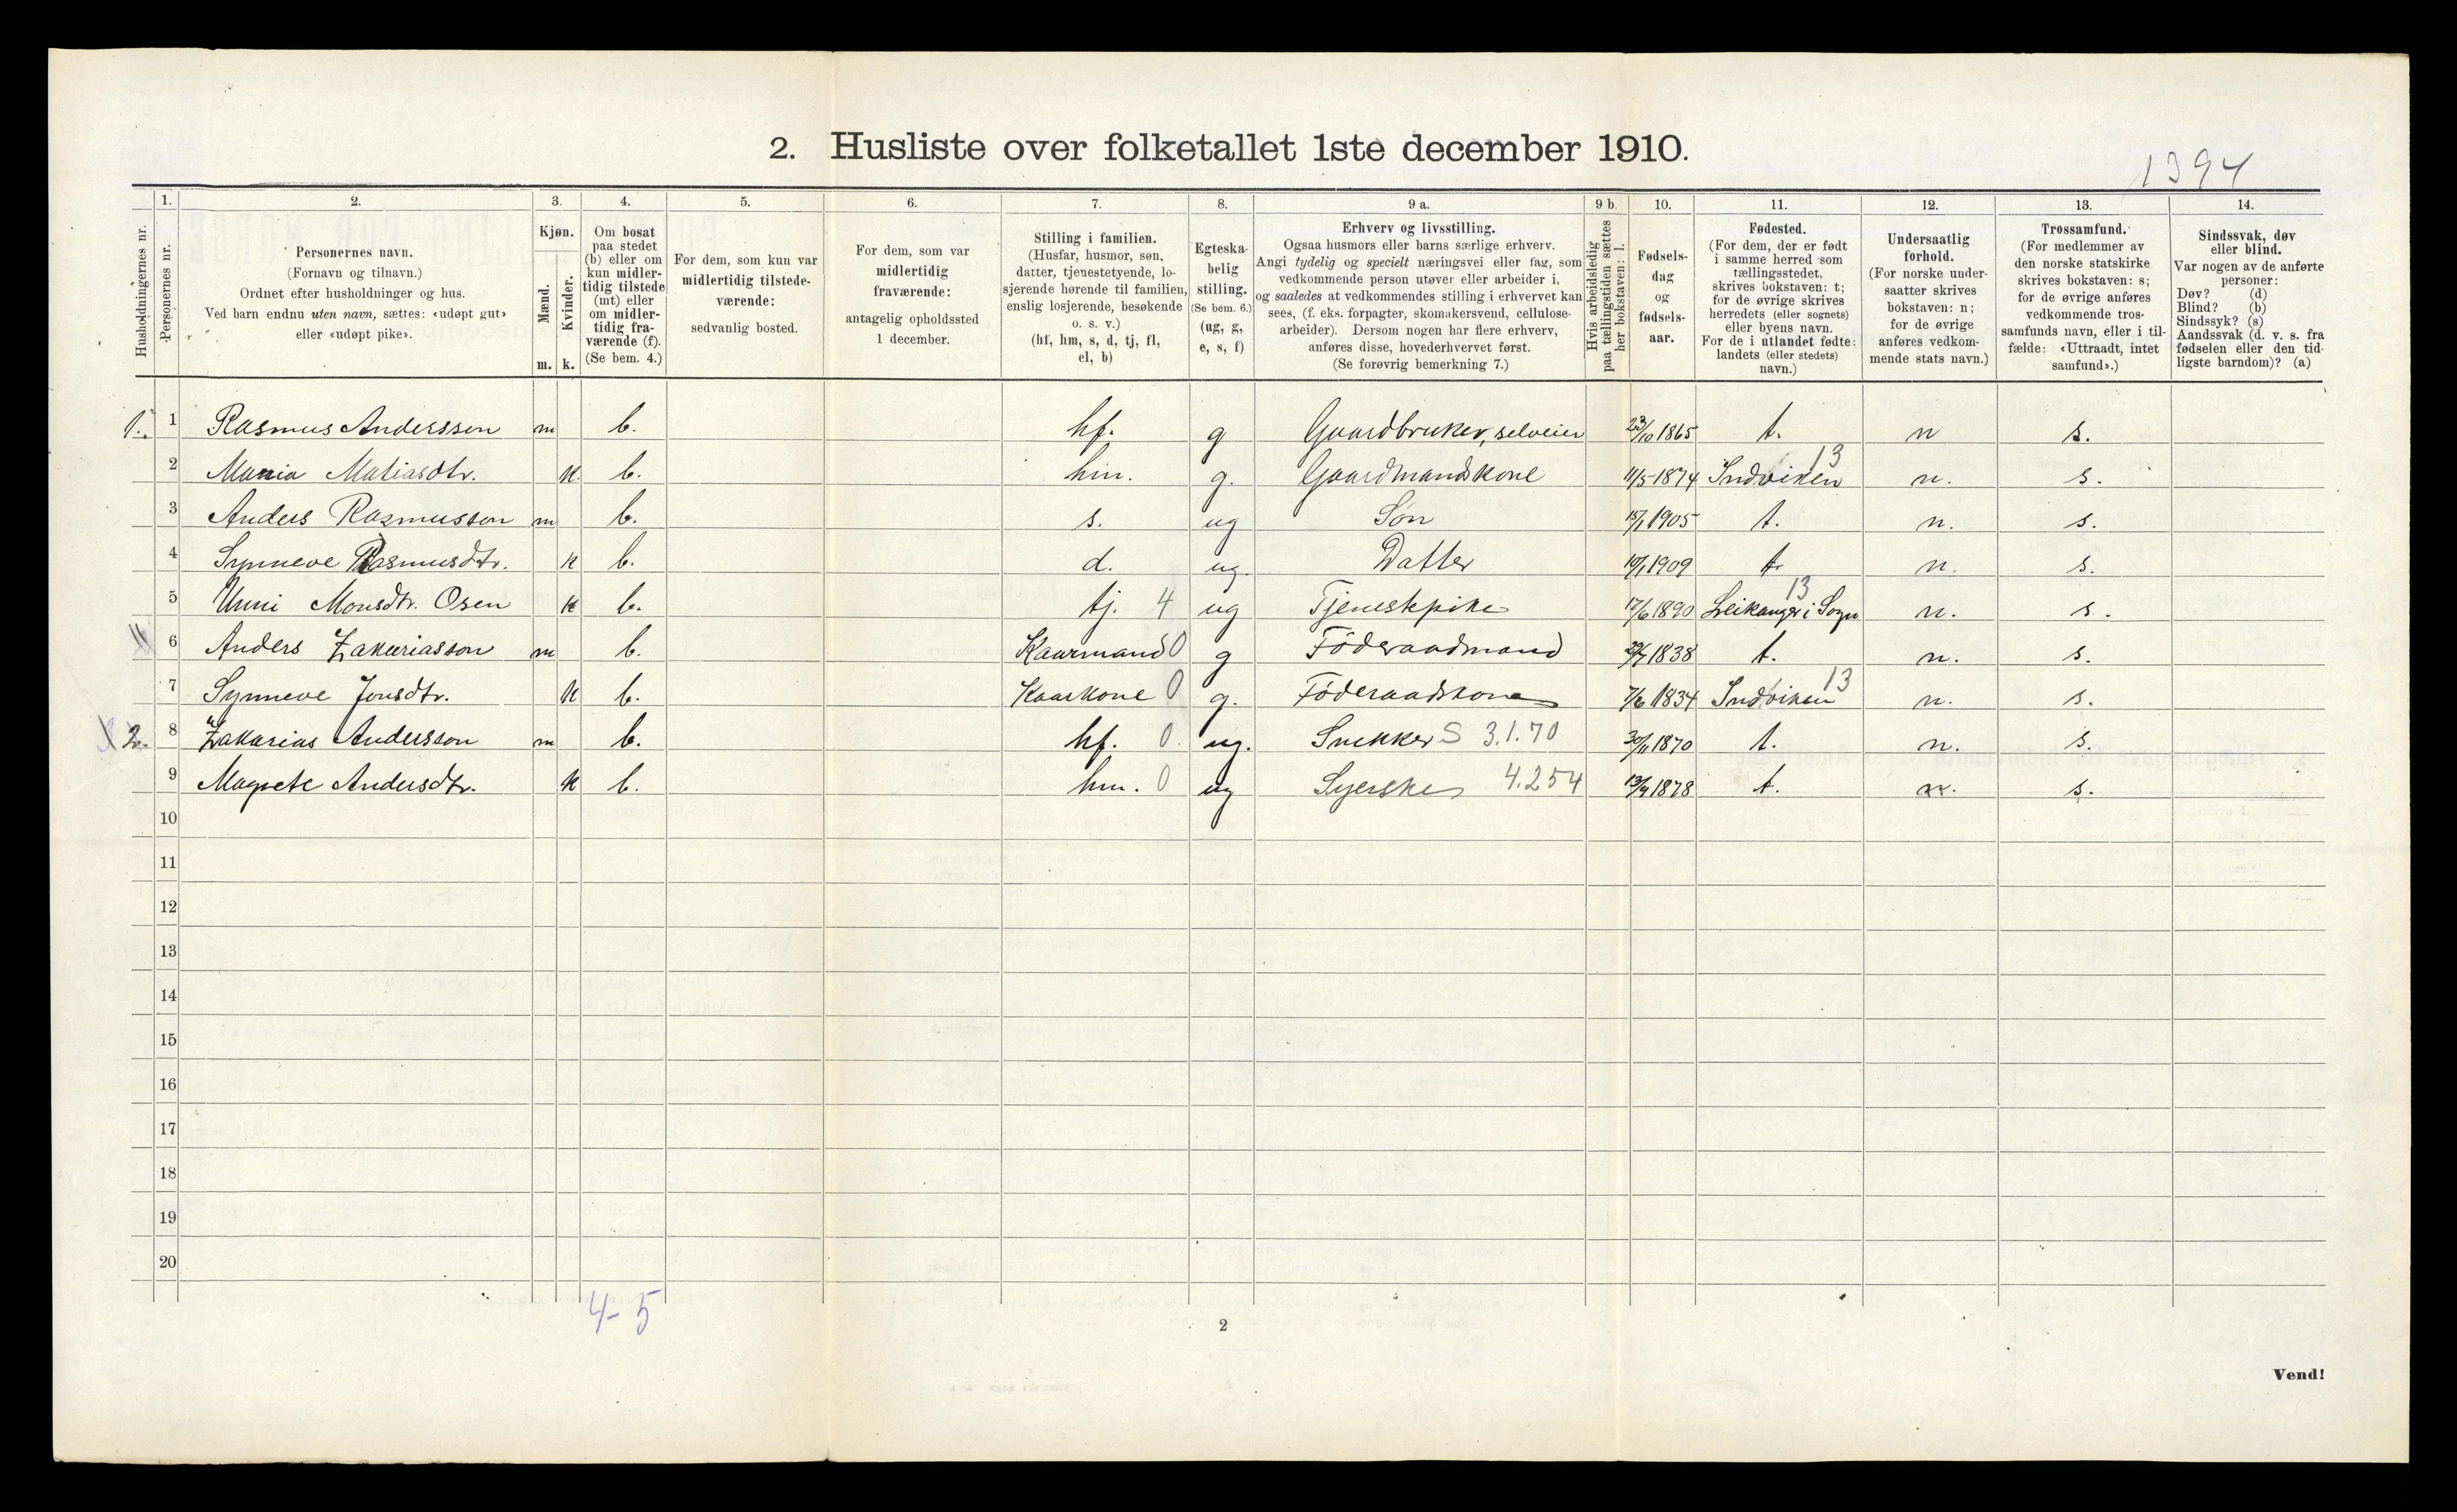 2. Husliste over folketallet 1ste december 1910.
1394
Husholdningernes nr.
1. Personernes nr.
2. Personernes navn.
(Fornavn og tilnavn.)
Ordnet efter husholdninger og hus.
Ved barn endnu uten navn, sættes: «udøpt gut»
eller «udøpt pike».
3. Kjøn.
Mænd. m.
Kvinder. k.
4. Om bosat
paa stedet
(b) eller om
kun midler-
tidig tilstede
(mt) eller
om midler-
tidig fra-
værende (f).
(Se bem. 4.)
5. For dem, som kun var
midlertidig tilstede-
værende:
sedvanlig bosted.
6. For dem, som var
midlertidig
fraværende:
antagelig opholdssted
1 december.
7. Stilling i familien.
(Husfar, husmor, søn,
datter, tjenestetyende, lo-
sjerende hørende til familien,
enslig losjerende, besøkende
o. s. v.)
(hf, hm, s, d, tj, fl,
el, b)
8. Egteska-
belig
stilling.
(Se bem. 6.)
(ug, g,
e, s, f)
9 a. Erhverv og livsstilling.
Ogsaa husmors eller barns særlige erhverv.
Angi tydelig og specielt næringsvei eller fag, som
vedkommende person utøver eller arbeider i,
og saaledes at vedkommendes stilling i erhvervet kan
sees, (f. eks. forpagter, skomakersvend, cellulose-
arbeider). Dersom nogen har flere erhverv,
anføres disse, hovederhvervet først.
(Se forøvrig bemerkning 7.)
9 b. Hvis arbeidsledig
paa tællingstiden sættes
her bokstaven: l.
10. Fødsels-
dag
og
fødsels-
aar.
11. Fødested.
(For dem, der er født
i samme herred som
tællingsstedet,
skrives bokstaven: t;
for de øvrige skrives
herredets (eller sognets)
eller byens navn.
For de i utlandet fødte:
landets (eller stedets)
navn.)
12. Undersaatlig
forhold.
(For norske under-
saatter skrives
bokstaven: n;
for de øvrige
anføres vedkom-
mende stats navn.)
13. Trossamfund.
(For medlemmer av
den norske statskirke
skrives bokstaven: s;
for de øvrige anføres
vedkommende tros-
samfunds navn, eller i til-
fælde: «Uttraadt, intet
samfund».)
14. Sindssvak, døv
eller blind.
Var nogen av de anførte
personer:
Døv? (d)
Blind? (b)
Sindssyk? (s)
Aandssvak (d. v. s. fra
fødselen eller den tid-
ligste barndom)? (a)
1. 1 Rasmus Andersson m b. hf. g Gaardbruker, selveier 23/10 1865 t. n s.
2 Maria Matiasdtr. k. b. hm. g. Gaardmandskone 11/5-1874 Indviken 13 n. s.
3 Anders Rasmusson m b. s. ug Søn 15/1 1905 t. n. s.
4 Synneve Rasmusdtr. k b. d. ug. Datter 1909 t. n. s.
5 Unni Monsdtr. Osen k b. tj. 4 ug Tjenestpike 17/6 1890 Leikanger i Sogn 13 n. s.
6 Anders Zakariasson m b. Kaarmand 0 g Föderaadmand 1838 t. n. s.
7 Synneve Jonsdtr. k b. Kaarkone 0 g. Föderaadskone 7/6 1834 Indviken 13 n. s.
2. 8 Zakarias Andersson m b. hf. 0 ug. Snekker S 3.1.70 30/11 1870 t. n. s.
9 Magrete Andersdtr. k b. hm. 0 ug Syerske 4.254 13/9 1878 t. n. s.
10
11
12
13
14
15
16
17
18
19
20
4-5
2
Vend!